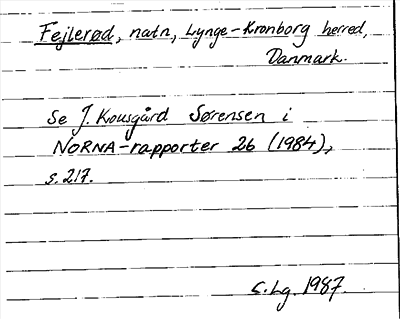 Fejlerød, natn, Lynge-Kronborg herred,
Danmark.
Se J. Kousgård Sørensen i
NORNA-rapporter 26 (1984),
s. 217.
S.Lg. 1987.